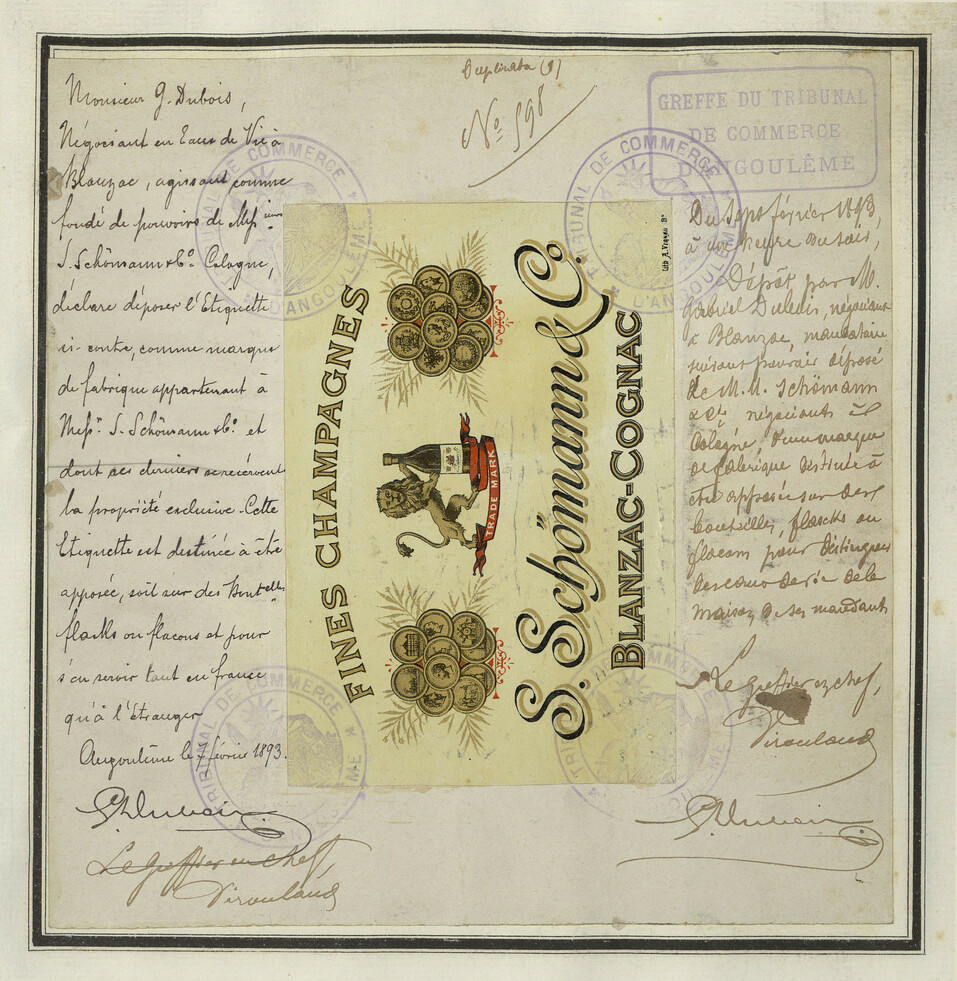 Duplicata (1)
No 598
Monsieur G. Dubois,
Négociant en Eaux de Vie à
Blanzac, agissant comme
fondé de pouvoirs de Messieurs
S. Schömann & Co. Cologne,
déclare déposer l'Etiquette
ci-contre, comme marque
de fabrique appartenant à
Messrs. S. Schömann & Co. et
dont ces derniers
la propriété exclusive. Cette
Etiquette est destinée à être
apposée, soit sur des Bouteilles
flasks ou flacons et pour
s'en servir tant en france
qu'à l'étranger
Angoulême le 7 février 1893.
G Dubois
Le Greffier en chef,
Virouland
TRIBUNAL DE COMMERCE
D'ANGOULÊME
FINES CHAMPAGNES
TRADE MARK
S. Schömann & Co.
BLANZAC-COGNAC
TRIBUNAL DE COMMERCE
D'ANGOULÊME
TRIBUNAL DE COMMERCE
TRIBUNAL DE COMMERCE
GREFFE DU TRIBUNAL
DE COMMERCE
D'ANGOULÊME
Du Sept février 1893,
à une heure du soir,
Dépôt par M.
Gabriel Dubois, négociant
à Blanzac, mandataire
suivant pouvoir déposé
de M.M. Schömann
& Cie négociants à
Cologne, d'une marque
de fabrique destinée à
être apposée sur des
bouteilles, flasks ou
flacons pour distinguer
des eaux de vie de la
maison de ses mandants
Le Greffier en chef,
Virouland
G Dubois